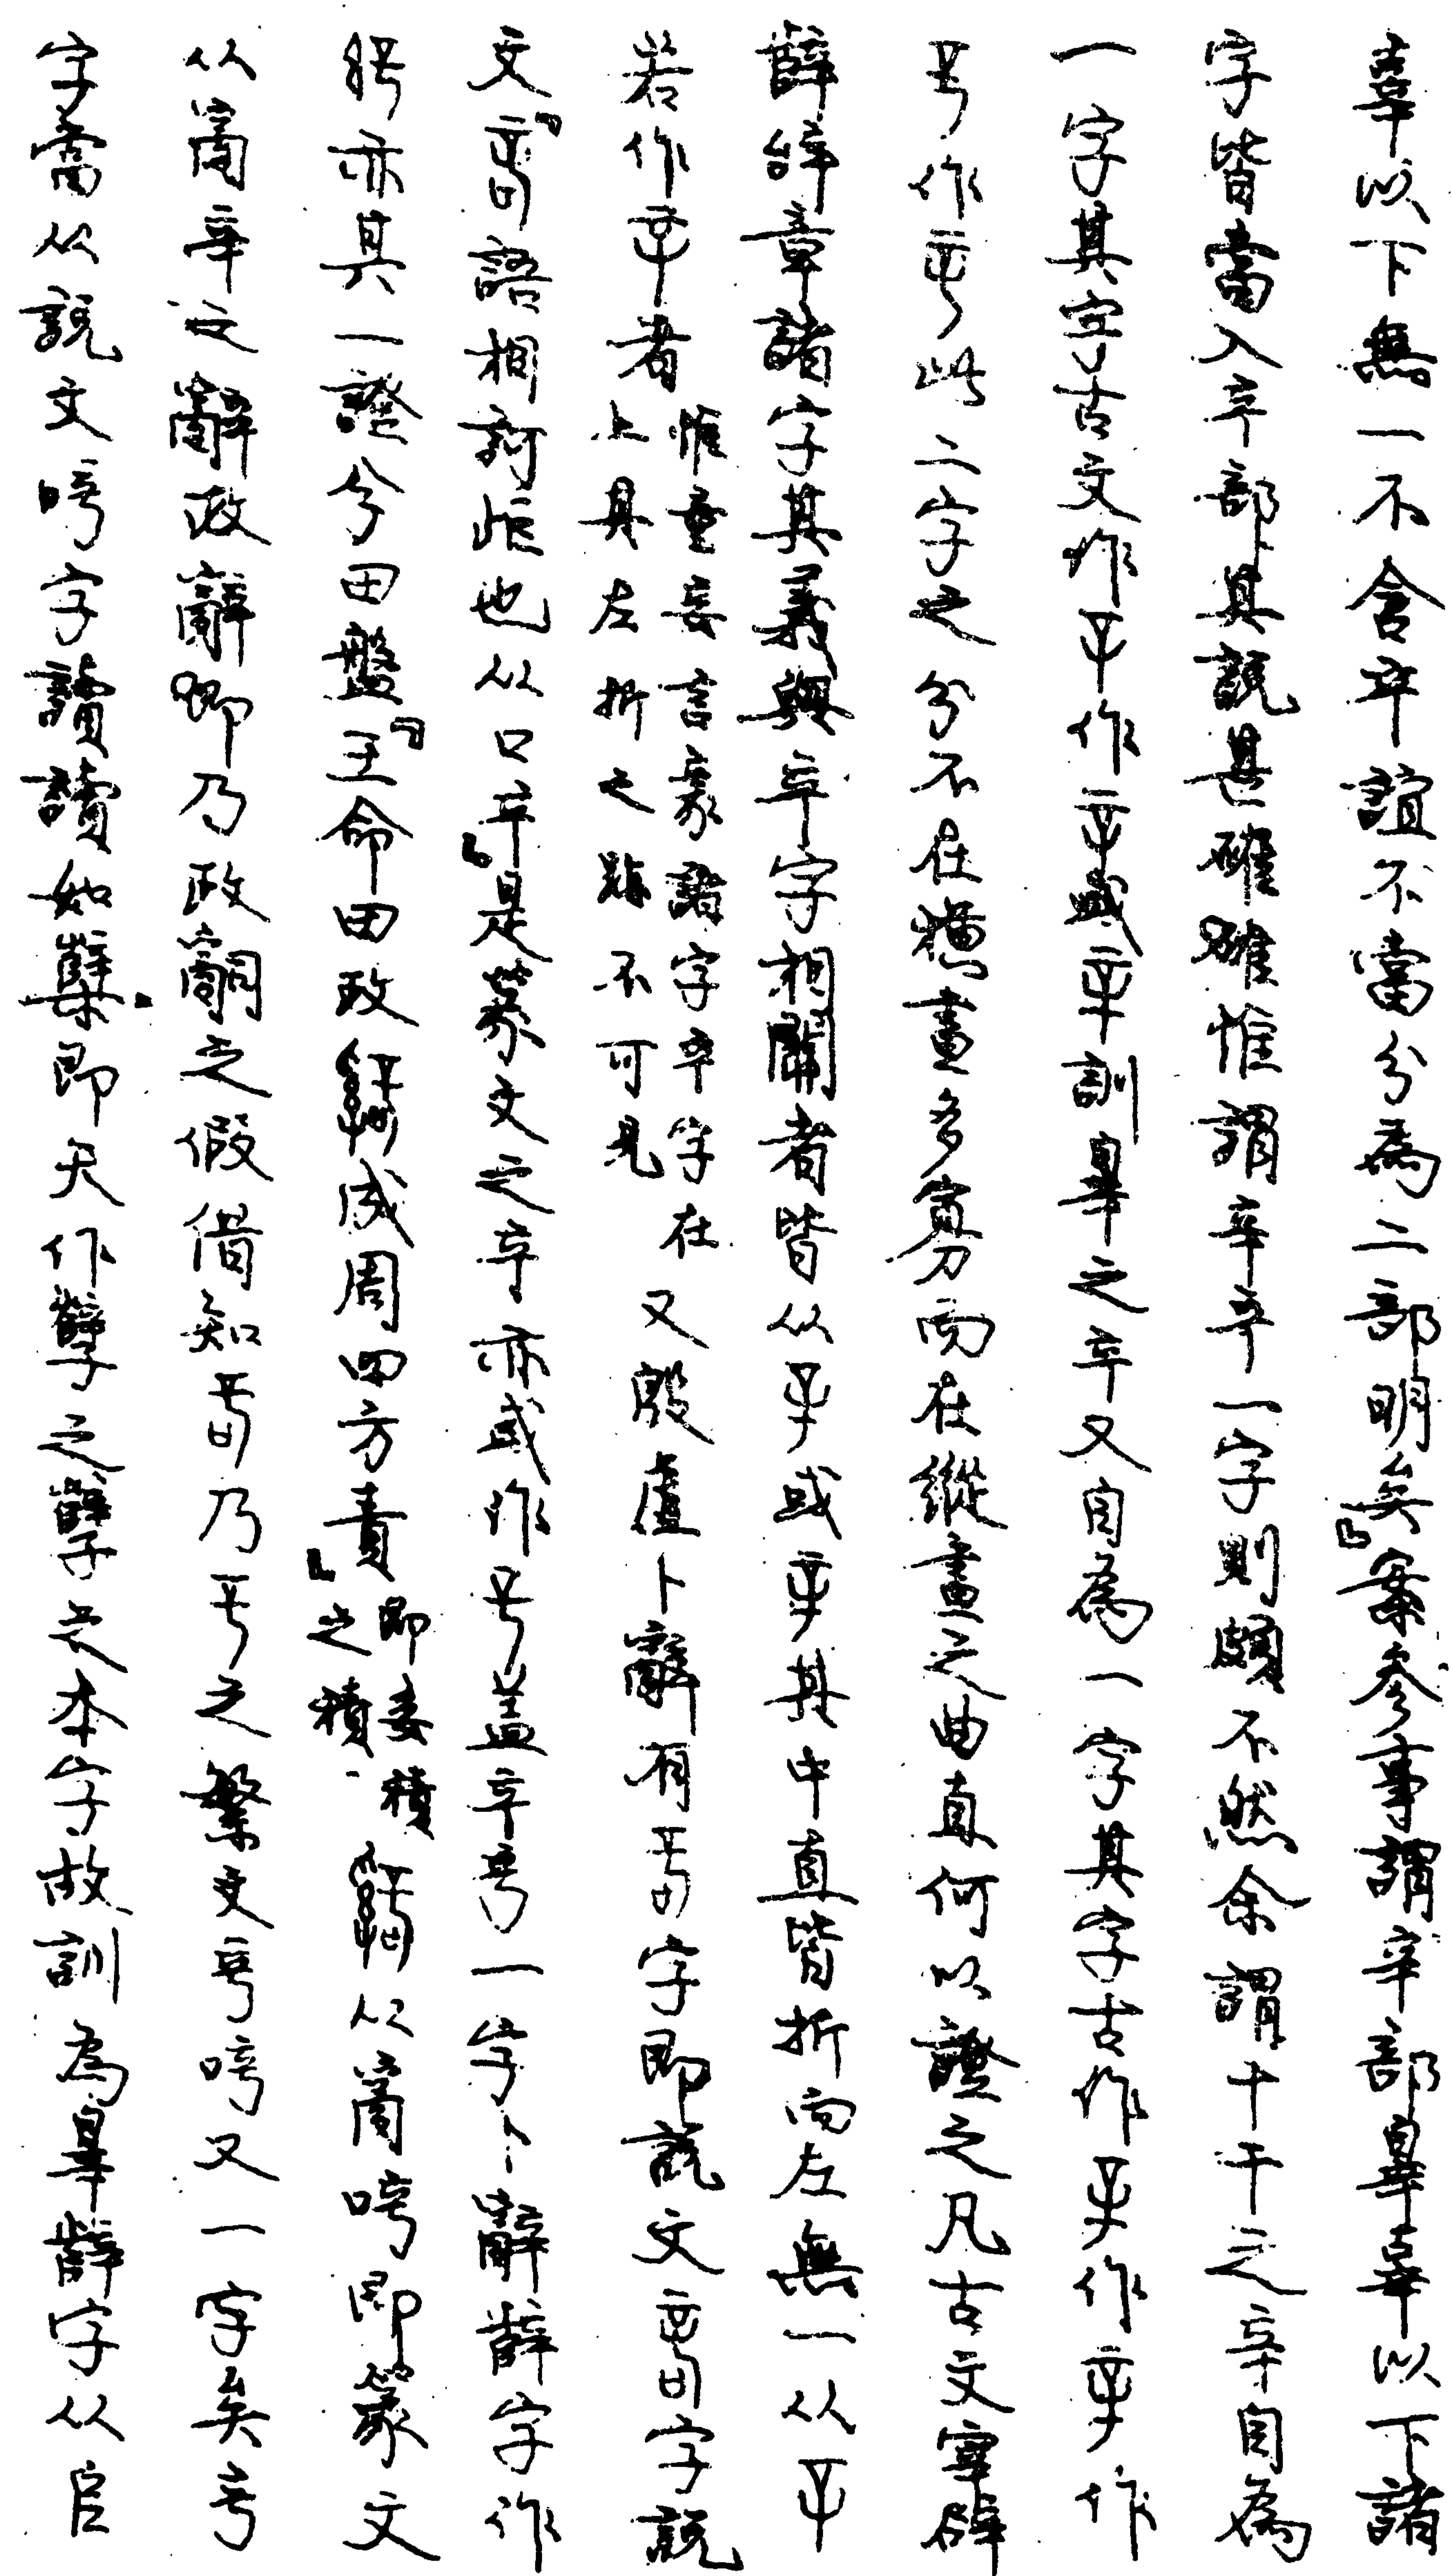 辜以下無一不含䇂誼不當分為二部明矣』案參事謂辛部辠辜以下諸
字皆當入䇂部其說甚確惟謂辛䇂一字則頗不然余謂十干之辛自為
一字其字古文作作或辛訓辠之䇂又自為一字其字古作作作
作此二字之分不在橫畫多寡而在縱畫之曲直何以證之凡古文宰辟
辥辭章諸字其義與䇂字相關者皆从或其中直皆折而左無一从
若作者惟童妾言豪諸字䇂字在上其左折之跡不可見又殷虛卜辭有字即說文字說
文『語相訶歫也从口䇂』是篆文之䇂亦或作蓋䇂一字卜辭辥字作
亦其一證兮田盤『王命田政成周四方責』即委積之積从𤔔即篆文
从𤔔辛之辭政辭即乃政嗣之假借知乃之繁文又一字矣
字當从說文字讀讀如櫱即天作孽之孽之本字故訓為辠辥字从𠂤